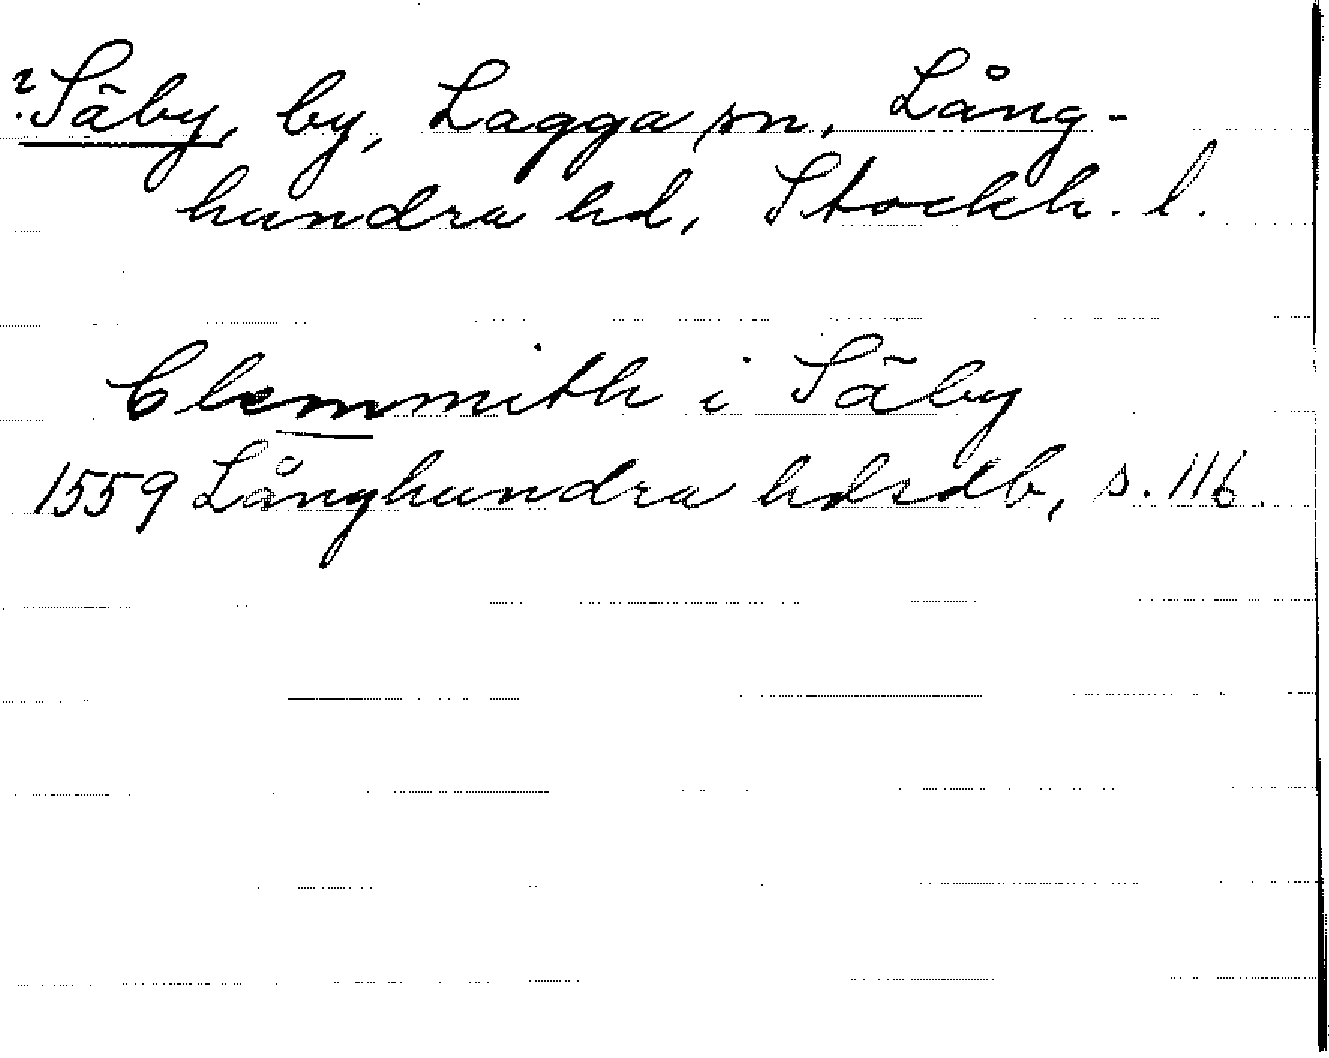 ?Säby, by, Lagga sn, Lång-
hundra hd, Stockh. l.
Clemmith i Säby
1559 Långhundra hdsdb, s. 116.